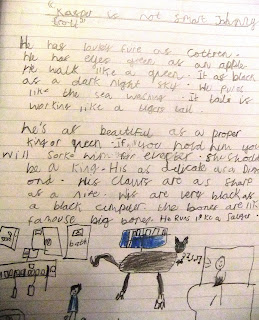 "Kasper is not smart Johnny
He has lovely fure as Cottren.
he has eyes green as an apple
He walk like a queen. It as black
as a dark night sky. He purs
like the sea waching. It tale is
working like a tigers tail.
he's as beautiful as a proper
king or queen. If you hold him you
will for ever. She should
be a king. His as delicate as a Dim
ond. His Clawrs are as sharp
as a nife. are very black as
a black cumputer. the bones are
famouse big bones. He Runs like a